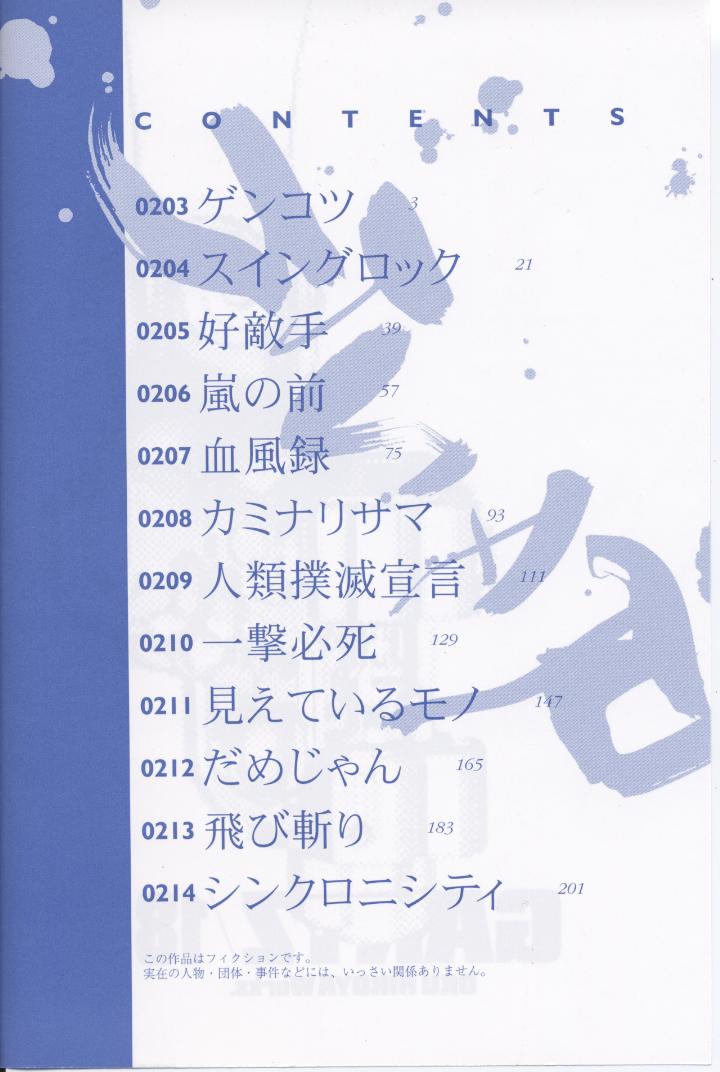 CONTENTS
0203 ゲンコツ 3
0204 スイングロック 21
0205 好敵手 39
0206 嵐の前 57
0207 血風録 75
0208 カミナリサマ 93
0209 人類撲滅宣言 111
0210 一撃必死 129
0211 見えているモノ 147
0212 だめじゃん 165
0213 飛び斬り 183
0214 シンクロニシティ 201
この作品はフィクションです。
実在の人物・団体・事件などには、いっさい関係ありません。